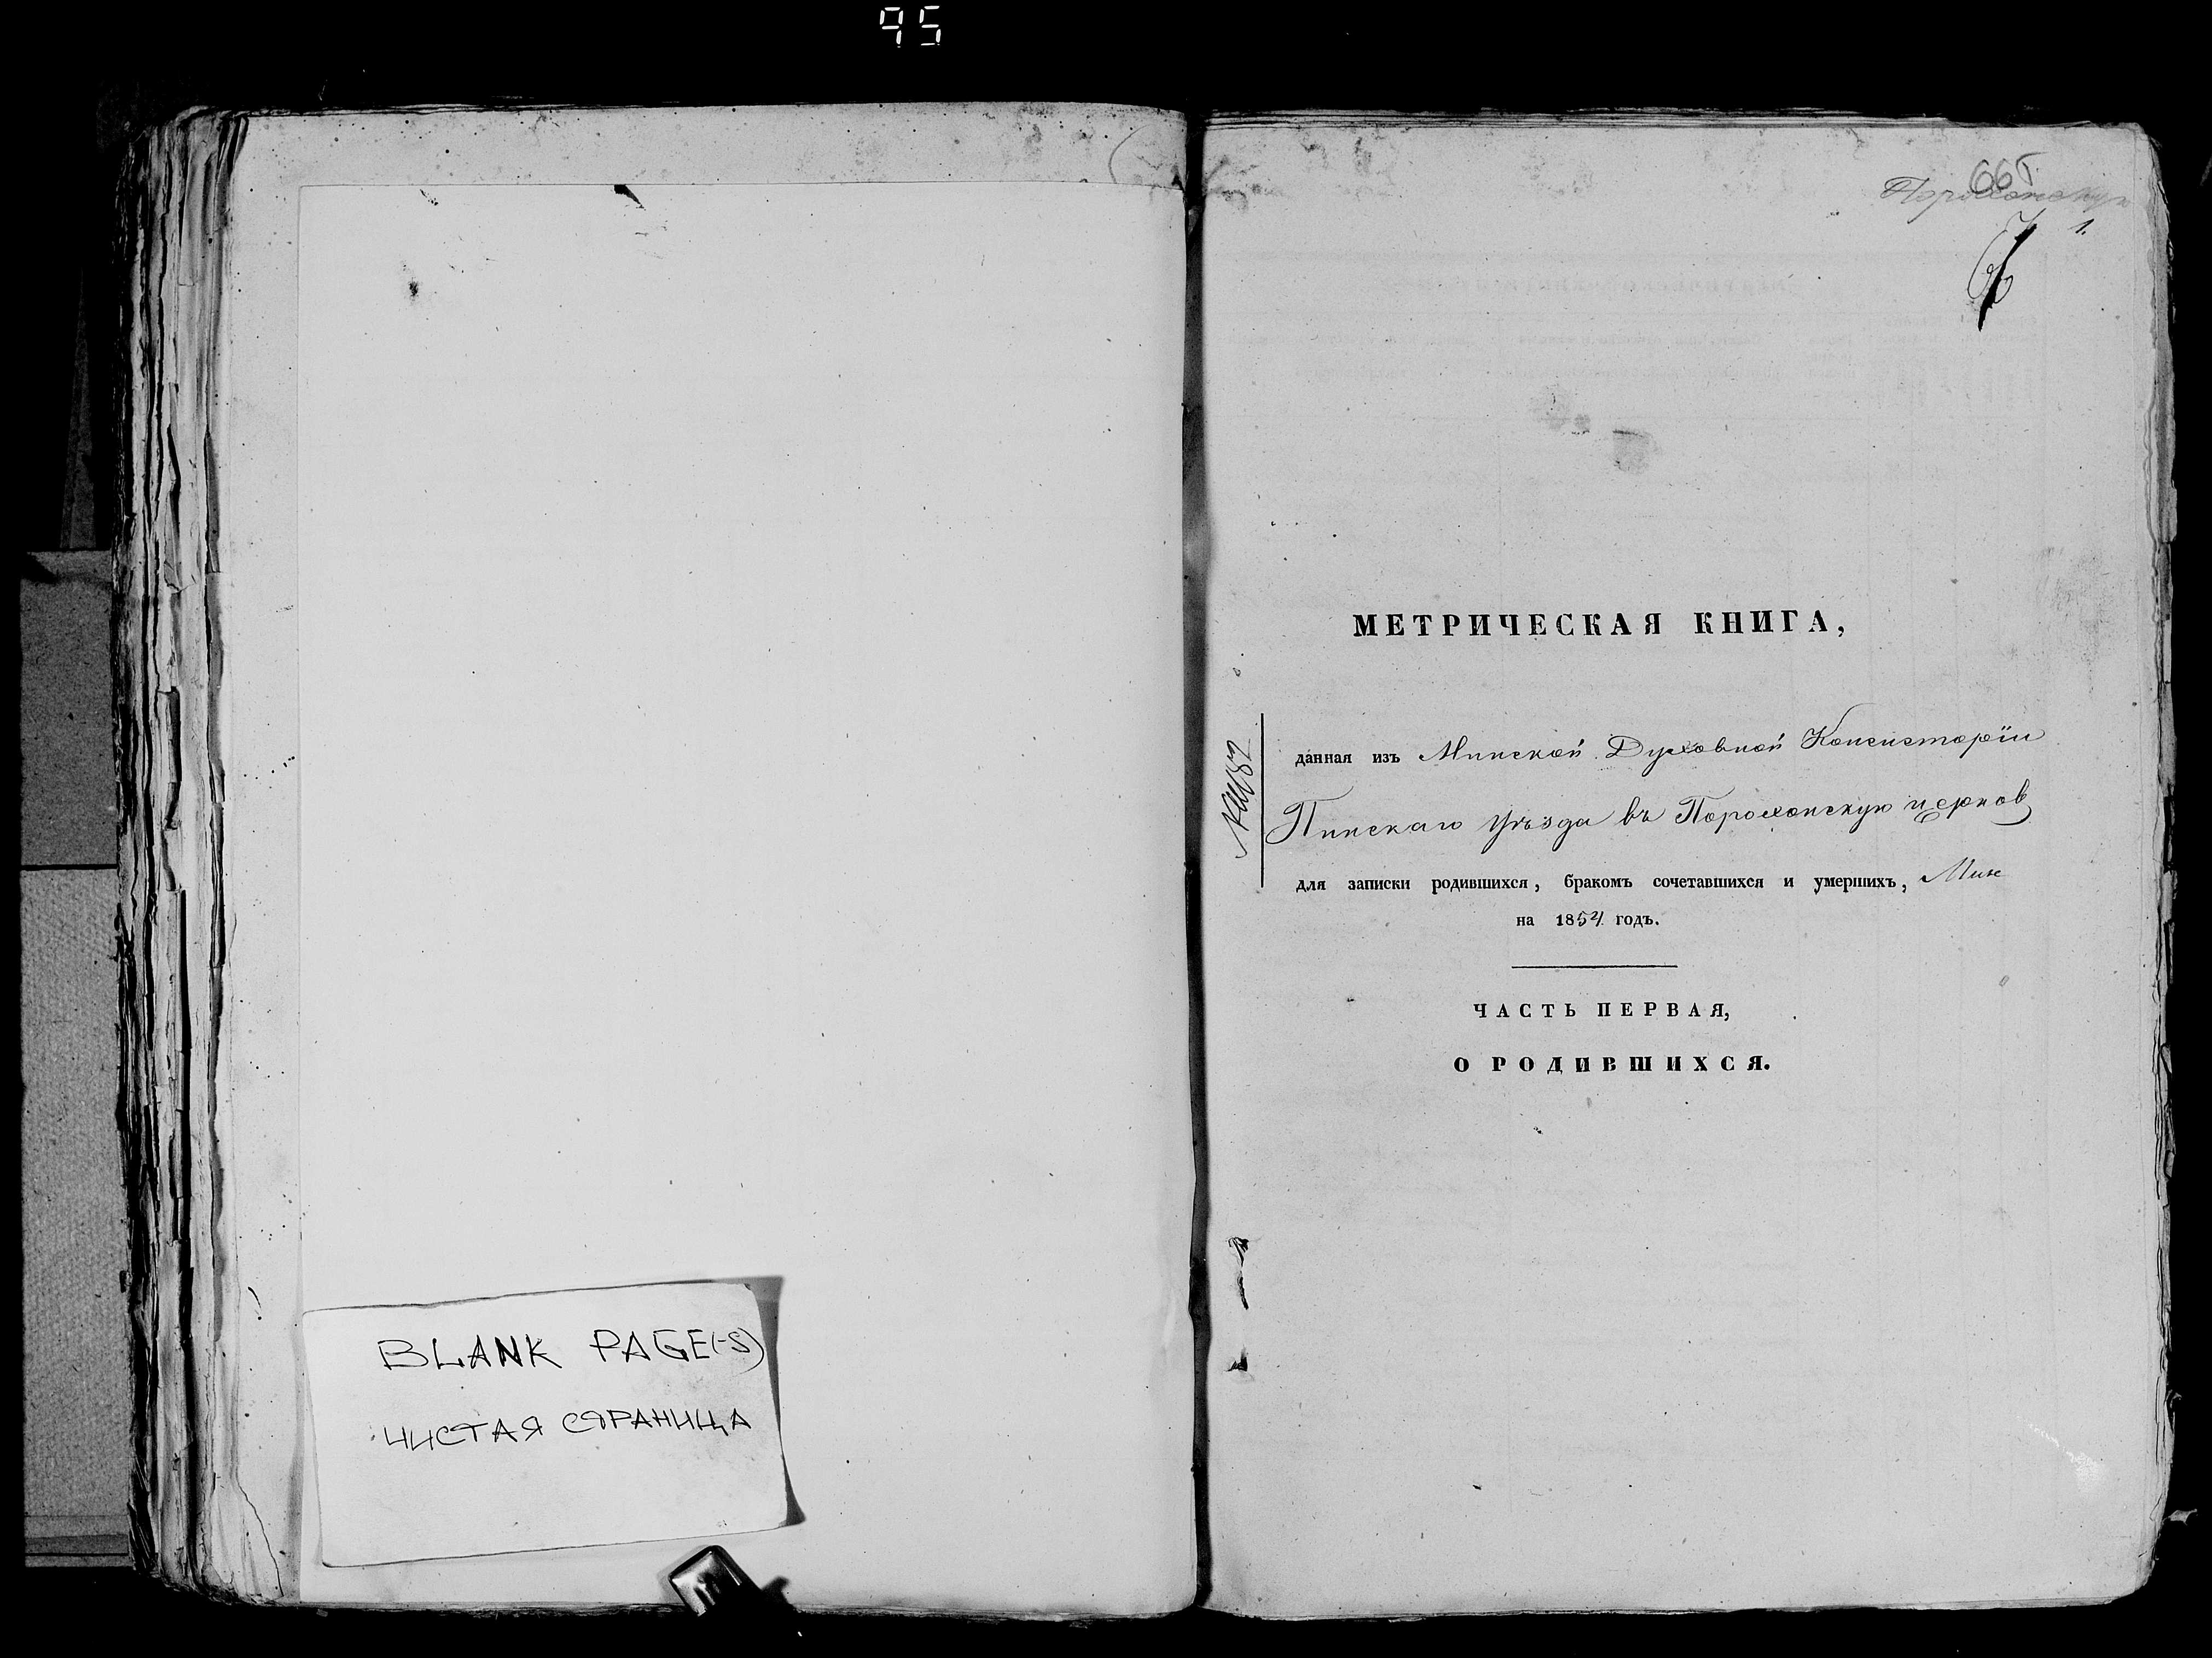 95
BLANK PAGE(-S)
ЧИСТАЯ СТРАНИЦА
665
Порохонскую
1.
МЕТРИЧЕСКАЯ КНИГА,
данная изъ Минской Духовной Консисторіи
Пинскаго уѣзда въ Порохонскую церковь
для записки родившихся, бракомъ сочетавшихся и умершихъ,
на 1854 годъ.
ЧАСТЬ ПЕРВАЯ,
О РОДИВШИХСЯ.